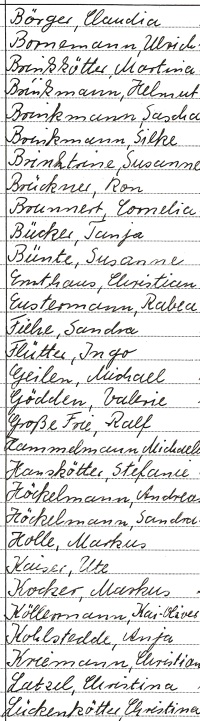 Börger, Claudia
Bornemann, Ulrich
Brinkkötter, Martina
Brinkmann, Helmut
Brinkmann, Sascha
Brinkmann, Silke
Brinktrine, Susanne
Brückner, Ron
Brunnert, Cornelia
Bücker, Tanja
Bünte, Susanne
Emthaus, Christian
Eustermann, Rabea
Fieke, Sandra
Flütter, Ingo
Geilen, Michael
Gödden, Valerie
Große Frie, Ralf
Hammelmann, Michaela
Hanskötter, Stefanie
Höckelmann, Andreas
Höckelmann, Sandra
Holle, Markus
Kaiser, Ute
Kocker, Markus
Köllermann, Kai-Oliver
Kohlstedde, Anja
Kriemann, Christian
Latzel, Christina
Lückenkötter, Christina